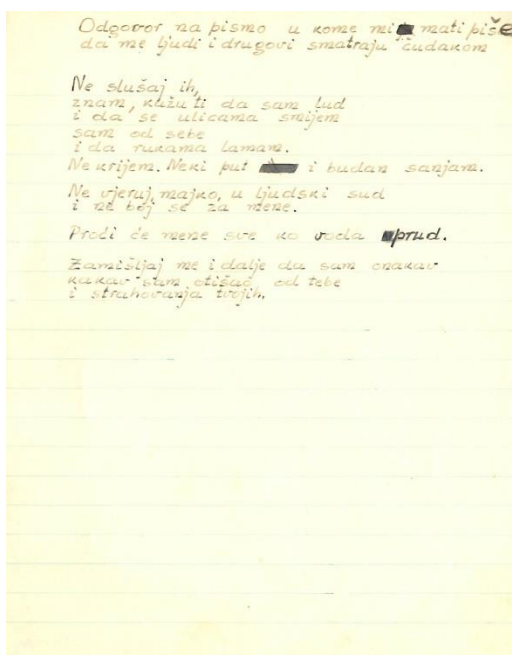 Odgovor na pismo u kome mi mati piše
da me ljudi i drugovi smatraju čudakom
Ne slušaj ih,
znam, kažu ti da sam lud
i da se ulicama smijem
sam od sebe
i da rukama lamam.
Ne krijem. Neki put i budan sanjam.
Ne vjeruj, majko, u ljudski sud
i ne boj se za mene.
Proći će mene sve ko voda prud.
Zamišljaj me i dalje da sam onakav
kakav sam otišao od tebe
i strahovanja tvojih.